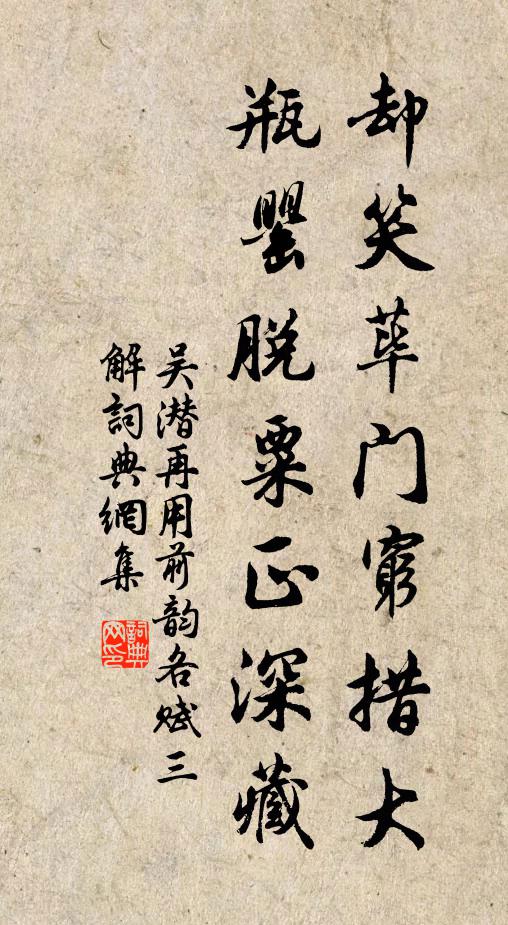 却笑荜门窮措大
瓶罂脱粟正深藏
吴潜再用前韵各赋三
解詞典網集
詞典
网印